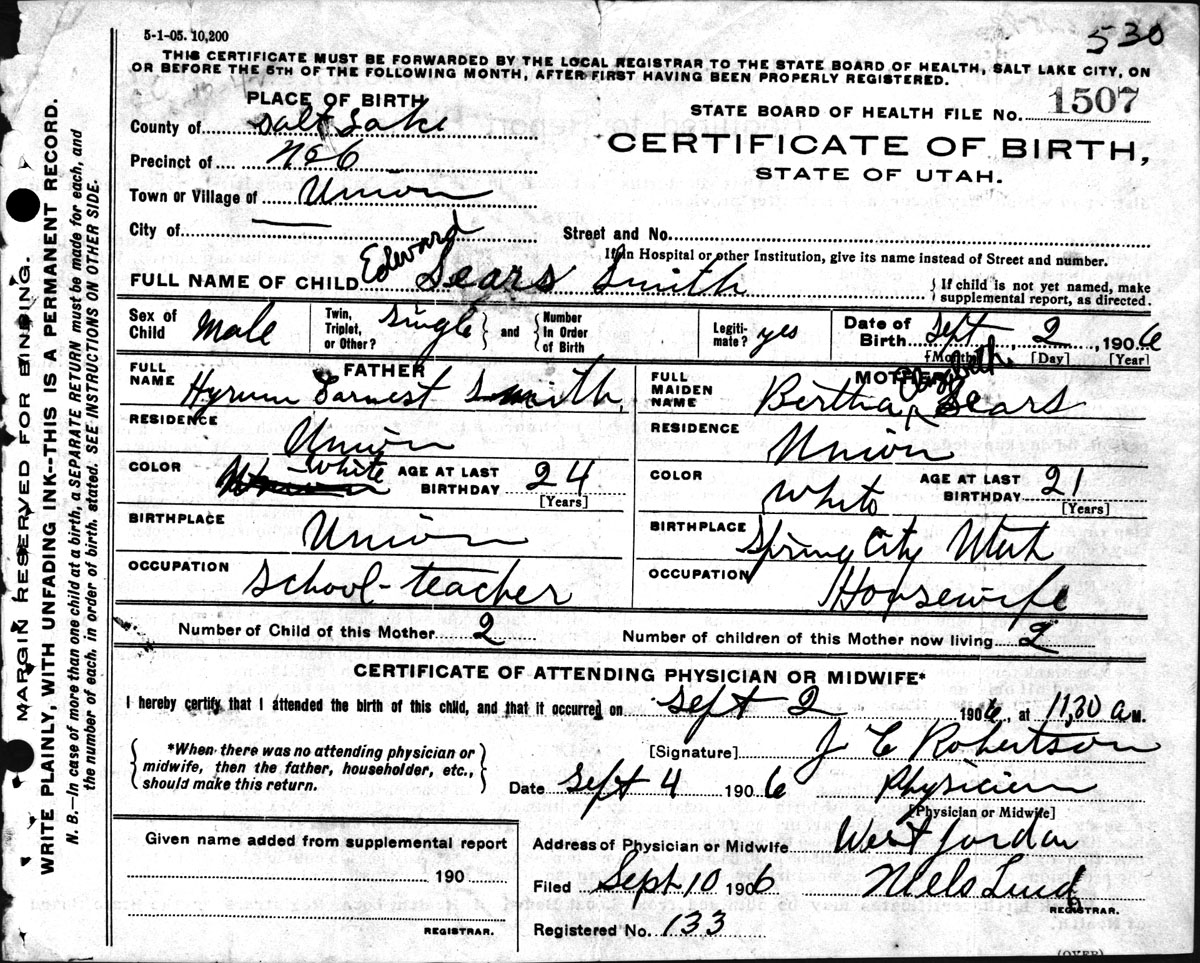 530
5-1-05. 10,200
THIS CERTIFICATE MUST BE FORWARDED BY THE LOCAL REGISTRAR TO THE STATE BOARD OF HEALTH, SALT LAKE CITY, ON
OR BEFORE THE 5TH OF THE FOLLOWING MONTH, AFTER FIRST HAVING BEEN PROPERLY REGISTERED.
PLACE OF BIRTH
STATE BOARD OF HEALTH FILE No. 1507
County of Salt Lake
CERTIFICATE OF BIRTH,
Precinct of No 6
STATE OF UTAH.
Town or Village of Union
City of —
Street and No.
If in Hospital or other Institution, give its name instead of Street and number.
FULL NAME OF CHILD Edward Sears Smith
{ If child is not yet named, make
supplemental report, as directed.
Sex of Child Male
Twin, Triplet, or Other? Single } and { Number In Order of Birth
Legitimate? yes
Date of Birth Sept 2, 1906
[Month] [Day] [Year]
FATHER
FULL NAME Hyrum Earnest Smith
RESIDENCE Union
COLOR White
AGE AT LAST BIRTHDAY 24
[Years]
BIRTHPLACE Union
OCCUPATION School-teacher
MOTHER
FULL MAIDEN NAME Bertha Elizabeth Sears
RESIDENCE Union
COLOR White
AGE AT LAST BIRTHDAY 21
[Years]
BIRTHPLACE Spring City Utah
OCCUPATION Housewife
Number of Child of this Mother 2
Number of children of this Mother now living 2
CERTIFICATE OF ATTENDING PHYSICIAN OR MIDWIFE*
I hereby certify that I attended the birth of this child, and that it occurred on Sept 2 1906, at 11,30 a M.
{ *When there was no attending physician or
midwife, then the father, householder, etc.,
should make this return. }
[Signature] J C Robertson
Date Sept 4 1906
Physicien
[Physician or Midwife]
Given name added from supplemental report
190
REGISTRAR.
Address of Physician or Midwife West Jordan
Filed Sept 10 1906
Niels Lind
REGISTRAR.
Registered No. 133
(OVER)
MARGIN RESERVED FOR BINDING.
WRITE PLAINLY, WITH UNFADING INK--THIS IS A PERMANENT RECORD.
N. B.—In case of more than one child at a birth, a SEPARATE RETURN must be made for each, and
the number of each, in order of birth, stated. SEE INSTRUCTIONS ON OTHER SIDE.